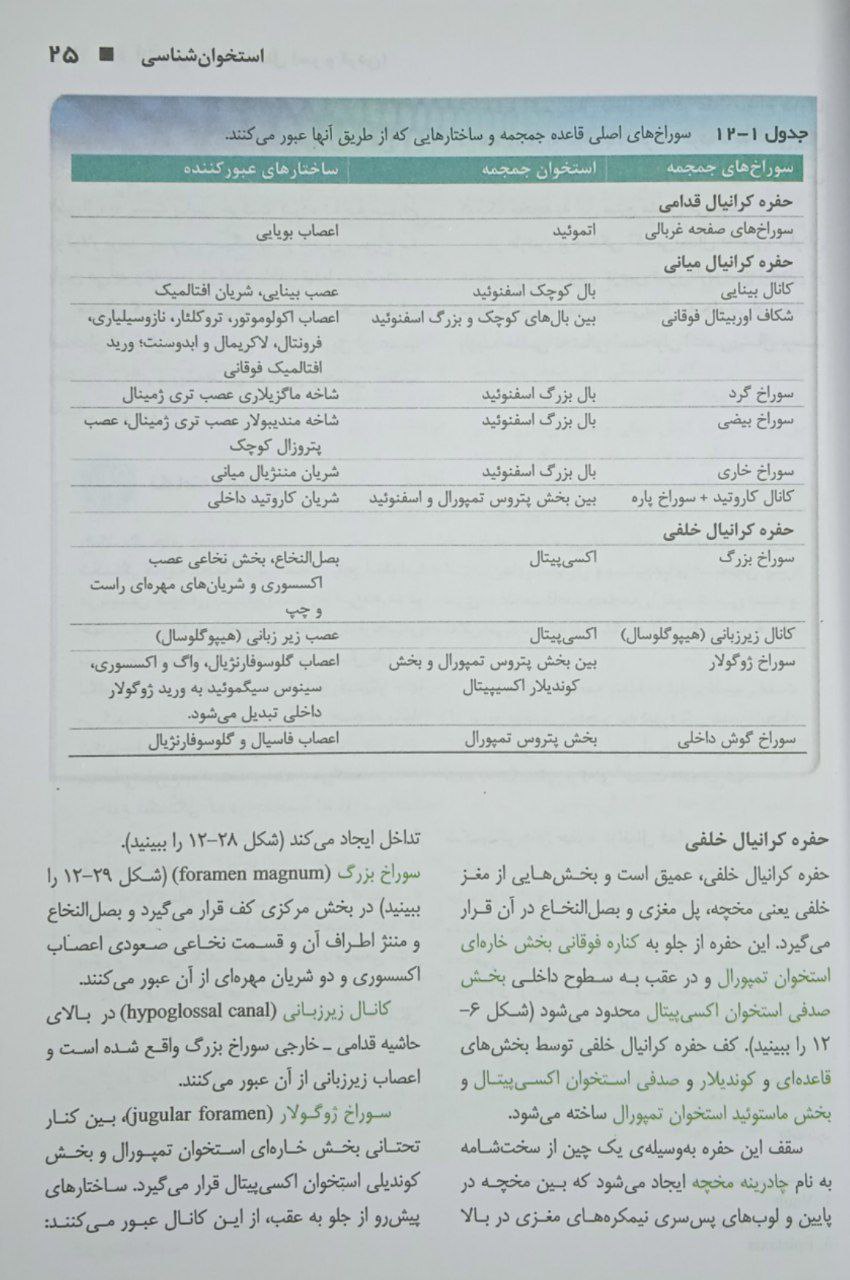 استخوان‌شناسی ■ ۲۵
جدول ۱-۱۲ سوراخ‌های اصلی قاعده جمجمه و ساختارهایی که از طریق آنها عبور می‌کنند.
سوراخ‌های جمجمه استخوان جمجمه ساختارهای عبورکننده
حفره کرانیال قدامی
سوراخ‌های صفحه غربالی اتموئید اعصاب بویایی
حفره کرانیال میانی
کانال بینایی بال کوچک اسفنوئید عصب بینایی، شریان افتالمیک
شکاف اوربیتال فوقانی بین بال‌های کوچک و بزرگ اسفنوئید اعصاب اکولوموتور، تروکلئار، نازوسیلیاری،
فرونتال، لاکریمال و ابدوسنت؛ ورید
افتالمیک فوقانی
سوراخ گرد بال بزرگ اسفنوئید شاخه ماگزیلاری عصب تری ژمینال
سوراخ بیضی بال بزرگ اسفنوئید شاخه مندیبولار عصب تری ژمینال، عصب
پتروزال کوچک
سوراخ خاری بال بزرگ اسفنوئید شریان مننژیال میانی
کانال کاروتید + سوراخ پاره بین بخش پتروس تمپورال و اسفنوئید شریان کاروتید داخلی
حفره کرانیال خلفی
سوراخ بزرگ اکسی‌پیتال بصل‌النخاع، بخش نخاعی عصب
اکسسوری و شریان‌های مهره‌ای راست
و چپ
کانال زیرزبانی (هیپوگلوسال) اکسی‌پیتال عصب زیر زبانی (هیپوگلوسال)
سوراخ ژوگولار بین بخش پتروس تمپورال و بخش اعصاب گلوسوفارنژیال، واگ و اکسسوری،
کوندیلار اکسیپیتال سینوس سیگموئید به ورید ژوگولار
داخلی تبدیل می‌شود.
سوراخ گوش داخلی بخش پتروس تمپورال اعصاب فاسیال و گلوسوفارنژیال
حفره کرانیال خلفی
حفره کرانیال خلفی، عمیق است و بخش‌هایی از مغز
خلفی یعنی مخچه، پل مغزی و بصل‌النخاع در آن قرار
می‌گیرد. این حفره از جلو به کناره فوقانی بخش خاره‌ای
استخوان تمپورال و در عقب به سطوح داخلی بخش
صدفی استخوان اکسی‌پیتال محدود می‌شود (شکل ۶-
۱۲ را ببینید). کف حفره کرانیال خلفی توسط بخش‌های
قاعده‌ای و کوندیلار و صدفی استخوان اکسی‌پیتال و
بخش ماستوئید استخوان تمپورال ساخته می‌شود.
سقف این حفره به‌وسیله‌ی یک چین از سخت‌شامه
به نام چادرینه مخچه ایجاد می‌شود که بین مخچه در
پایین و لوب‌های پس‌سری نیمکره‌های مغزی در بالا
تداخل ایجاد می‌کند (شکل ۲۸-۱۲ را ببینید).
سوراخ بزرگ (foramen magnum) (شکل ۲۹-۱۲ را
ببینید) در بخش مرکزی کف قرار می‌گیرد و بصل‌النخاع
و مننژ اطراف آن و قسمت نخاعی صعودی اعصاب
اکسسوری و دو شریان مهره‌ای از آن عبور می‌کنند.
کانال زیرزبانی (hypoglossal canal) در بالای
حاشیه قدامی ـ خارجی سوراخ بزرگ واقع شده است و
اعصاب زیرزبانی از آن عبور می‌کنند.
سوراخ ژوگولار (jugular foramen)، بین کنار
تحتانی بخش خاره‌ای استخوان تمپورال و بخش
کوندیلی استخوان اکسی‌پیتال قرار می‌گیرد. ساختارهای
پیش‌رو از جلو به عقب، از این کانال عبور می‌کنند: